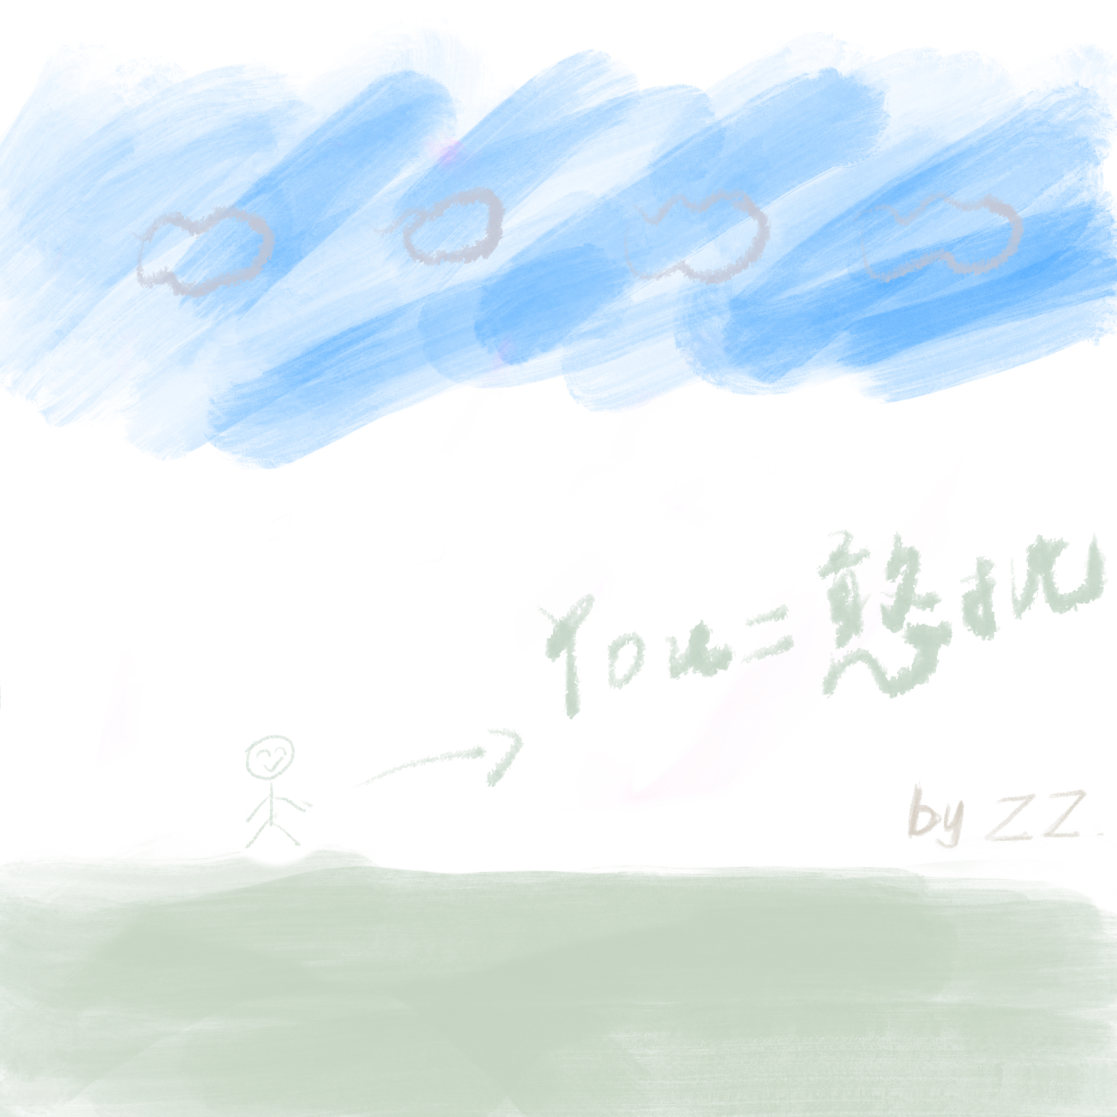 You=憨批
by ZZ.